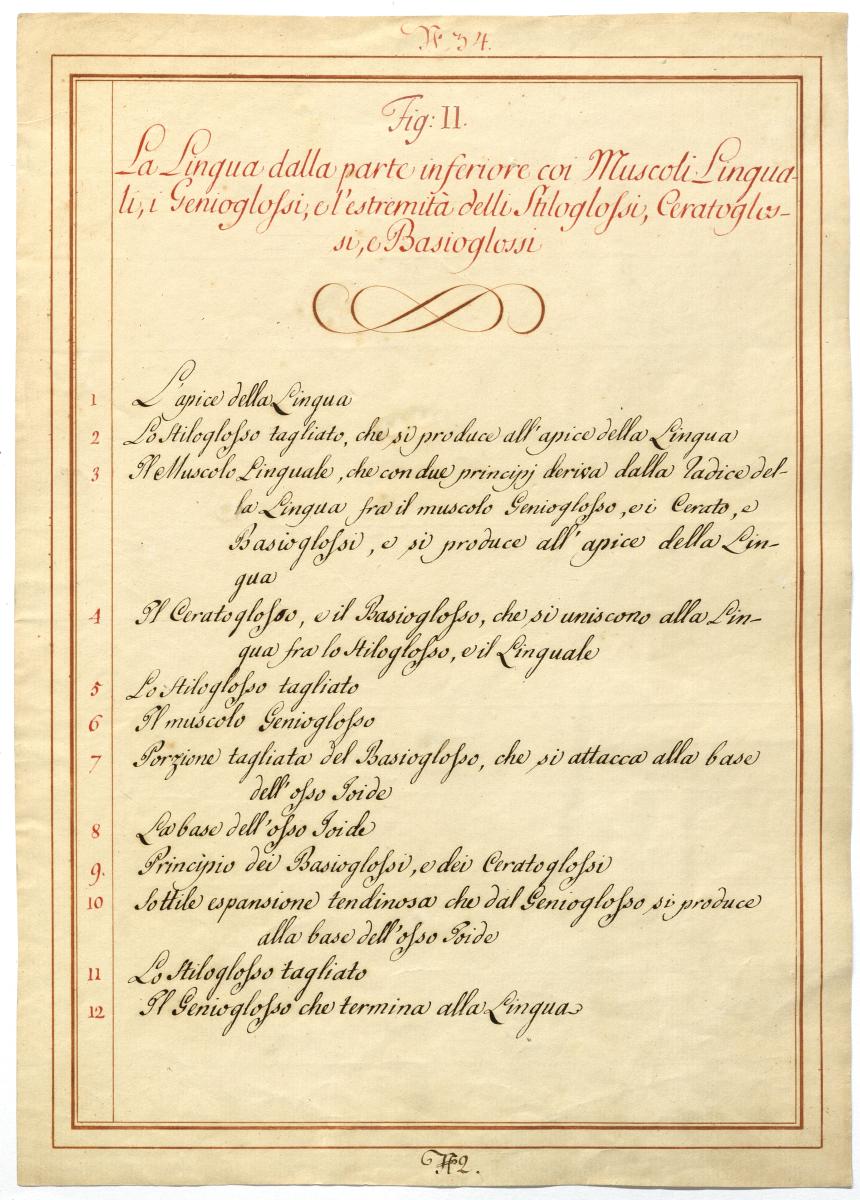 N. 34.
Fig: II.
La Lingua dalla parte inferiore coi Muscoli Lingua-
li, i Genioglossi, e l'estremità delli Stiloglossi, Ceratoglos-
si, e Basioglossi
1 L'apice della Lingua
2 Lo Stiloglosso tagliato, che si produce all'apice della Lingua
3 Il Muscolo Linguale, che con due principj deriva dalla radice del-
la Lingua fra il muscolo Genioglosso, e i Cerato, e
Basioglossi, e si produce all'apice della Lin-
gua
4 Il Ceratoglosso, e il Basioglosso, che si uniscono alla Lin-
gua fra lo Stiloglosso, e il Linguale
5 Lo Stiloglosso tagliato
6 Il muscolo Genioglosso
7 Porzione tagliata del Basioglosso, che si attacca alla base
dell'osso Joide
8 La base dell'osso Joide
9. Principio dei Basioglossi, e dei Ceratoglossi
10 Sottile espansione tendinosa che dal Genioglosso si produce
alla base dell'osso Joide
11 Lo Stiloglosso tagliato
12 Il Genioglosso che termina alla Lingua
N2.